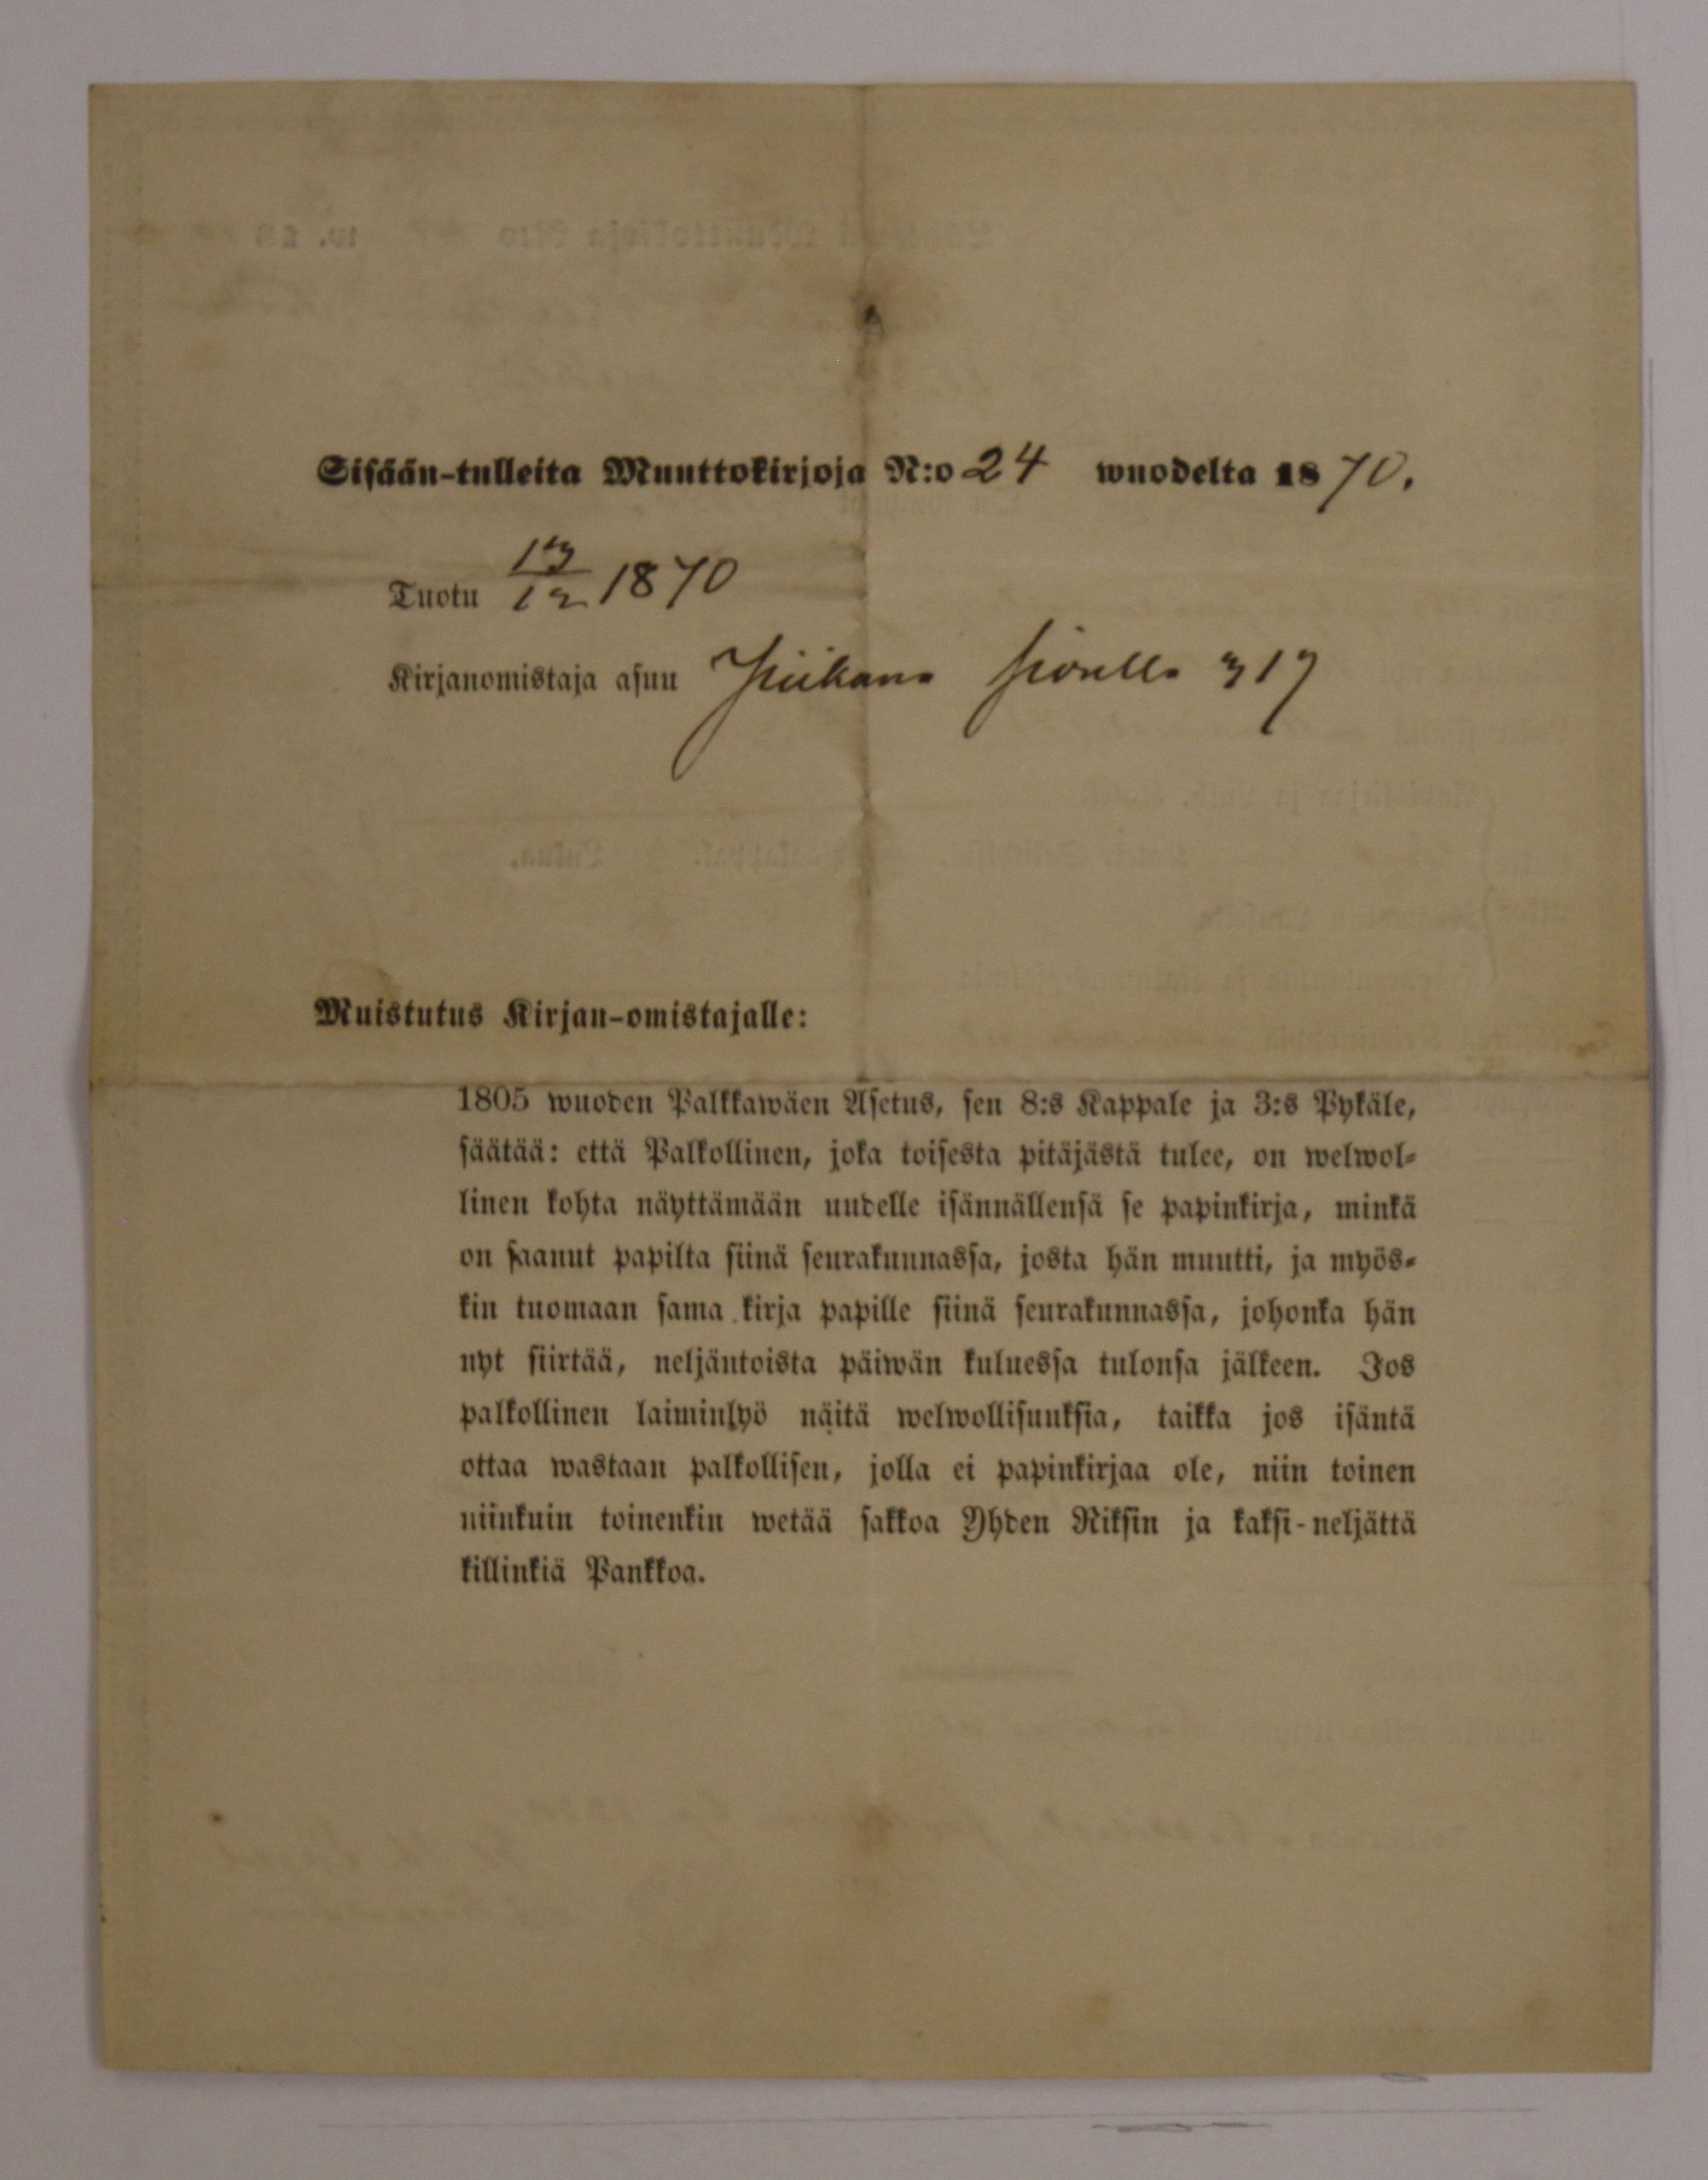 Sisään-tulleita Muuttokirjoja N:o 24 wuodelta 1870.
Tuotu 13/12 1870
Kirjanomistaja asuu 317
Muistutus Kirjan-omistajalle:
1805 wuoden Palkkawäen Asetus, sen 8:s Kappale ja 3:s Pykäle,
säätää: että Palkollinen, joka toisesta pitäjästä tulee, on welwol-
linen kohta näyttämään uudelle isännällensä se papinkirja, minkä
on saanut papilta siinä seurakunnassa, josta hän muutti, ja myös-
kin tuomaan sama kirja papille siinä seurakunnassa, johonka hän
nyt siirtää, neljäntoista päiwän kuluessa tulonsa jälkeen. Jos
palkollinen laiminlyö näitä welwollisuuksia, taikka jos isäntä
ottaa wastaan palkollisen, jolla ei papinkirjaa ole, niin toinen
niinkuin toinenkin wetää sakkoa Yhden Riksin ja kaksi-neljättä
killinkiä Pankkoa.